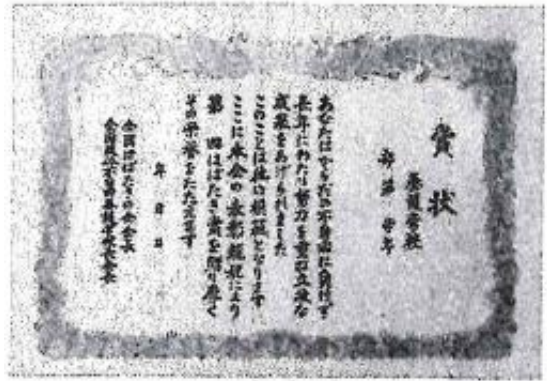 賞状
養護学校
部 第 学年
あなたはからだの不自由に負けず
長年にわたり努力を重ね立派な
成果をあげられました
このことは他の模範となります
ここに本会の表彰規程により
第 回はばたき賞を贈り厚く
その栄誉をたたえます
年 月 日
全国はばたきの会会長